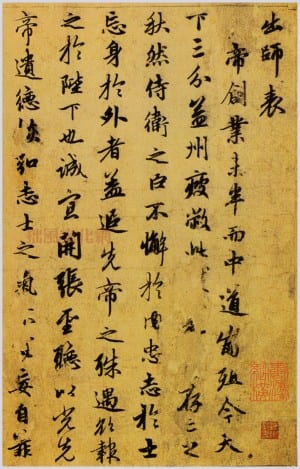 出師表
帝創業未半而中道崩殂今天
下三分益州疲敝此 存亡之
秋然侍衛之臣不懈於內忠志於士
忘身於外者蓋追先帝之殊遇欲報
之於陛下也誠宜開張聖聽以光先
帝遺德恢弘志士之氣不宜妄自菲